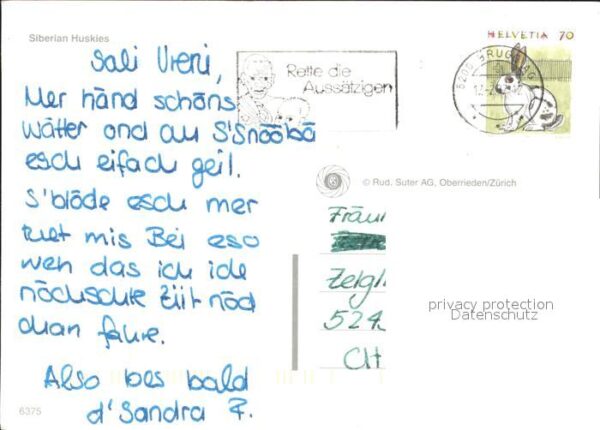 Siberian Huskies
HELVETIA 70
Sali Vreni,
Mer händ schöns
wätter ond au S'Snööbö
esch eifach geil.
S'blöde esch mer
tuet mis Bei eso
weh das ich ide
nöchschte Ziit nöd
chan fahre.
Also bes bald
d'Sandra F.
Rette die
Aussätzigen
5200 BRUGG AG
© Rud. Suter AG, Oberrieden/Zürich
Fräu
Zelgl
524
CH
privacy protection
Datenschutz
6375